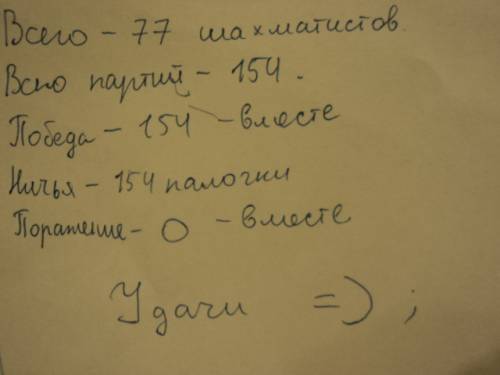 Всего - 77 шахматистов
Всего партий - 154.
Победа - 154 - вместе
Ничья - 154 палочки
Поражение - 0 - вместе
Удачи =) ;